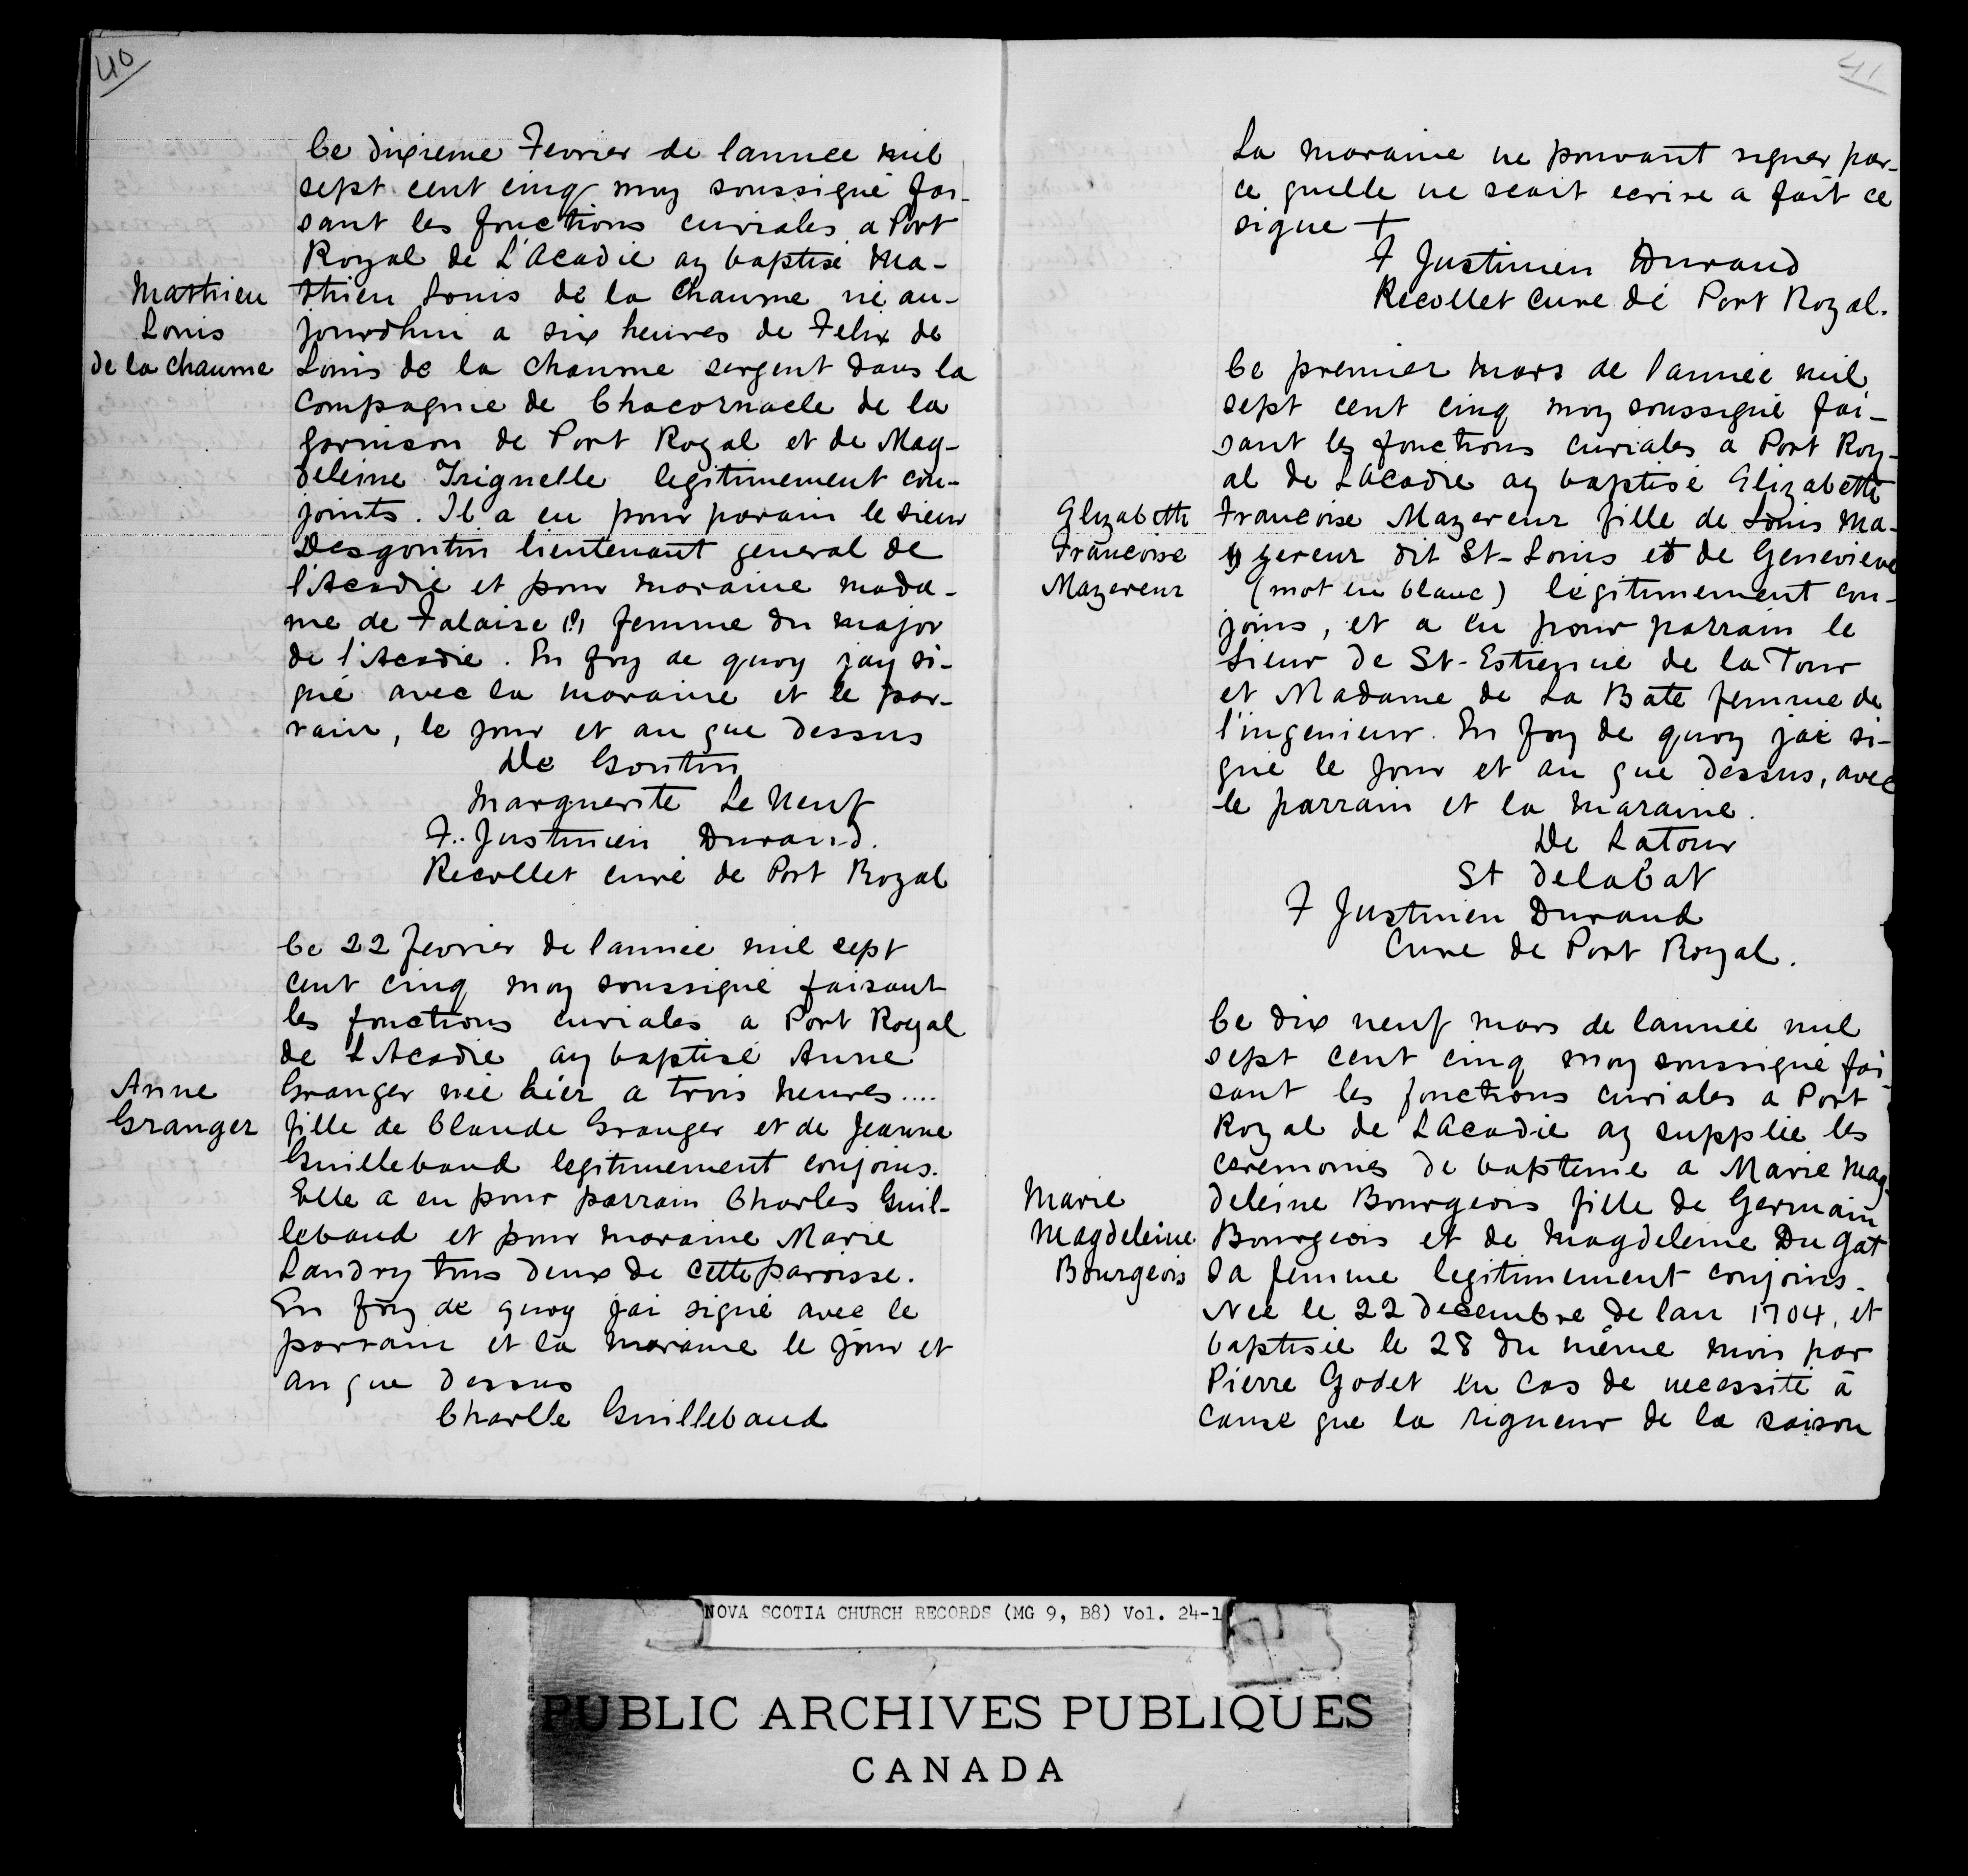 40
Ce dixieme Fevrier de lannee mil
sept cent cinq moy soussigné fai-
sant les fonctions curiales a Port
Royal de L'Acadie ay baptisé Ma-
Mathieu
thieu Louis de la Chaume né au-
Louis
jourdhui a six heures de Felix de
de la chaume
Louis de la chaume sergent dans la
Compagnie de Chacornacle de la
garnison de Port Royal et de Mag-
deleine Trignelle legitimement con-
joints. Il a eu pour parain le sieur
Desgoutin lieutenant general de
l'Acadie et pour maraine mada-
me de Falaise (?) femme du major
de l'Acadie. En foy de quoy jay si-
gné avec la maraine et le par-
rain, le jour et an que dessus
De Goutin
Marguerite Le Neuf
F. Justinien Durand.
Recollet curé de Port Royal
Ce 22 fevrier de lannée mil sept
cent cinq moy soussigné faisant
les fonctions curiales a Port Royal
de LAcadie ay baptisé Anne
Anne
Granger née hier a trois heures....
Granger
fille de Claude Granger et de Jeanne
Guillebaud legitimement conjoins.
Elle a eu pour parrain Charles Guil-
lebaud et pour maraine Marie
Landry tous deux de cette paroisse.
En foy de quoy jai signé avec le
parrain et la maraine le jour et
an que dessus
Charlle Guillebaud
41
La maraine ne pouvant signer par-
ce quelle ne scait ecrire a fait ce
signe +
F Justinien Durand
Recollet Cure de Port Royal.
Ce premier mars de l'année mil
sept cent cinq moy soussigné fai-
sant les fonctions curiales a Port Roy-
al de LAcadie ay baptisé Elizabeth
Elizabeth
Francoise Mazereur fille de Louis Ma-
Francoise
zereur dit St-Louis et de Genevieve
Mazereur
(mot en blanc) légitimement con-
joins, et a eu pour parrain le
Sieur de St-Estienne de la Tour
et Madame de La Bate femme de
l'ingenieur. En foy de quoy jai si-
gné le jour et an que dessus, avec
le parrain et la maraine.
De LaTour
St delabat
F Justinien Durand
Cure de Port Royal.
Ce dix neuf mars de lannée mil
sept cent cinq moy soussigné fai-
sant les fonctions curiales a Port
Royal de LAcadie ay supplie les
ceremonies de bapteme a Marie Mag-
Marie
deleine Bourgeois fille de Germain
Magdeleine
Bourgeois et de Magdeleine Du Gat
Bourgeois
sa femme legitimement conjoins.
Née le 22 decembre de lan 1704, et
baptisée le 28 du même mois par
Pierre Godet en cas de necessité à
cause que la rigueur de la saison
NOVA SCOTIA CHURCH RECORDS (MG 9, B8) Vol. 24-1
PUBLIC ARCHIVES PUBLIQUES
CANADA